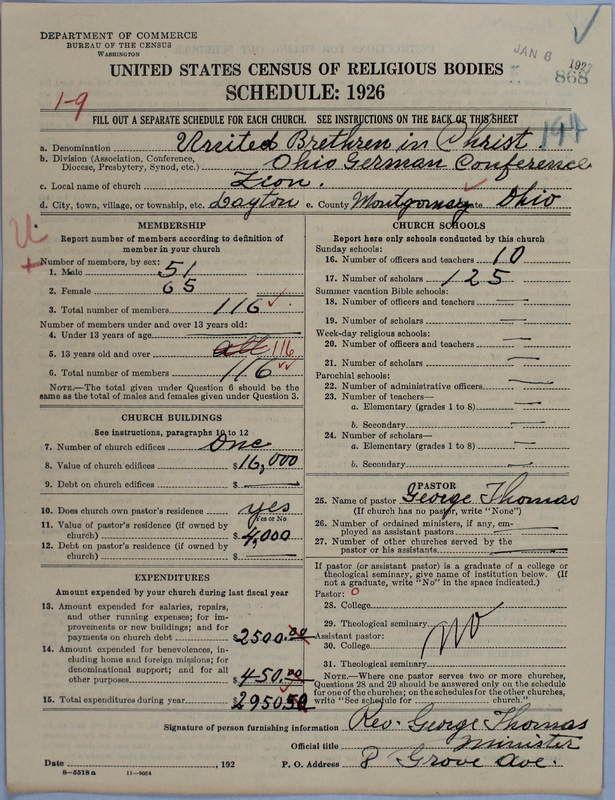 DEPARTMENT OF COMMERCE
BUREAU OF THE CENSUS
WASHINGTON
JAN 6 192
868
UNITED STATES CENSUS OF RELIGIOUS BODIES
SCHEDULE: 1926
1-9
FILL OUT A SEPARATE SCHEDULE FOR EACH CHURCH. SEE INSTRUCTIONS ON THE BACK OF THIS SHEET
194
a. Denomination United Brethren in Christ
b. Division (Association, Conference, Diocese, Presbytery, Synod, etc.) Ohio German Conference
c. Local name of church Zion.
d. City, town, village, or township, etc. Dayton e. County Montgomery State Ohio
U
MEMBERSHIP
Report number of members according to definition of
member in your church
Number of members, by sex:
1. Male 51
2. Female 65
3. Total number of members 116
Number of members under and over 13 years old:
4. Under 13 years of age
5. 13 years old and over all 116
6. Total number of members 116
NOTE.—The total given under Question 6 should be the
same as the total of males and females given under Question 3.
CHURCH BUILDINGS
See instructions, paragraphs 10 to 12
7. Number of church edifices One
8. Value of church edifices $16,000
9. Debt on church edifices $
10. Does church own pastor's residence yes
Yes or No
11. Value of pastor's residence (if owned by
church) $4,000
12. Debt on pastor's residence (if owned by
church) $
EXPENDITURES
Amount expended by your church during last fiscal year
13. Amount expended for salaries, repairs,
and other running expenses; for im-
provements or new buildings; and for
payments on church debt $2500.00
14. Amount expended for benevolences, in-
cluding home and foreign missions; for
denominational support; and for all
other purposes $450.00
15. Total expenditures during year $2950
CHURCH SCHOOLS
Report here only schools conducted by this church
Sunday schools:
16. Number of officers and teachers 10
17. Number of scholars 125
Summer vacation Bible schools:
18. Number of officers and teachers
19. Number of scholars
Week-day religious schools:
20. Number of officers and teachers
21. Number of scholars
Parochial schools:
22. Number of administrative officers
23. Number of teachers—
a. Elementary (grades 1 to 8)
b. Secondary
24. Number of scholars—
a. Elementary (grades 1 to 8)
b. Secondary
PASTOR
25. Name of pastor George Thomas
(If church has no pastor, write "None")
26. Number of ordained ministers, if any, em-
ployed as assistant pastors
27. Number of other churches served by the
pastor or his assistants
If pastor (or assistant pastor) is a graduate of a college or
theological seminary, give name of institution below. (If
not a graduate, write "No" in the space indicated.)
Pastor: 0
28. College
29. Theological seminary
Assistant pastor: No
30. College
31. Theological seminary
NOTE.—Where one pastor serves two or more churches,
Questions 28 and 29 should be answered only on the schedule
for one of the churches; on the schedules for the other churches,
write "See schedule for church."
Signature of person furnishing information Rev. George Thomas
Official title Minister
Date , 192 P. O. Address 8 Grove Ave.
8—5518 a 11—9054